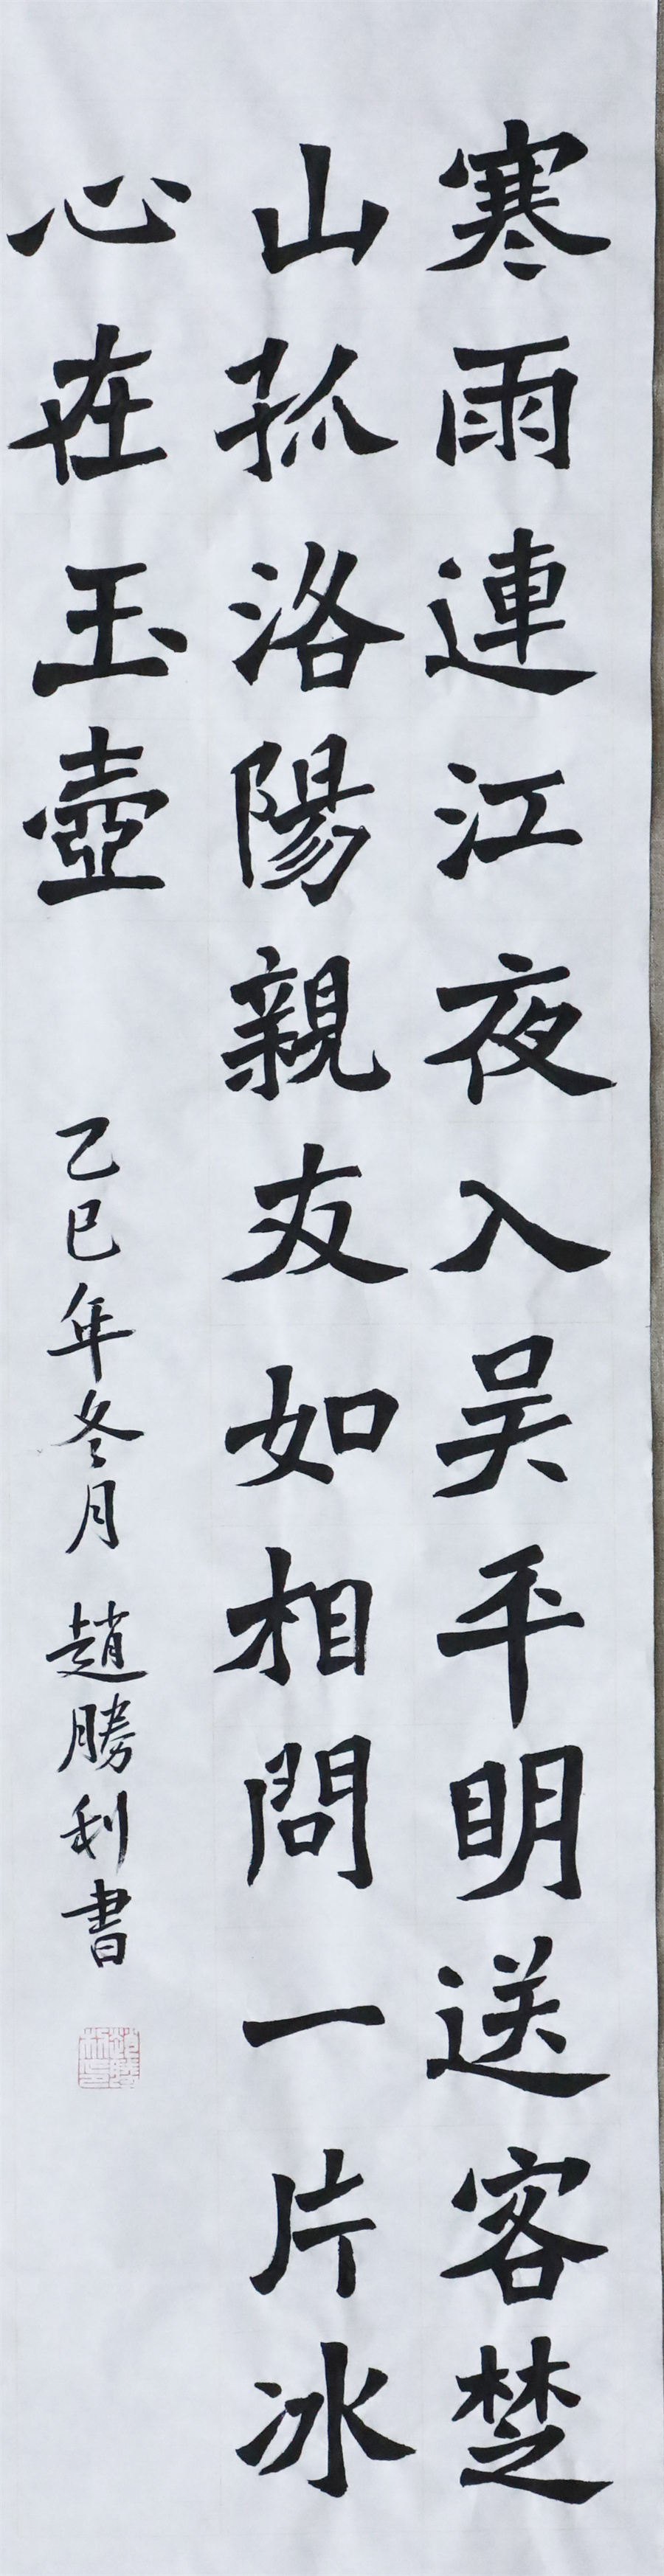 寒雨連江夜入吴平明送客楚
山孤洛陽親友如相問一片冰
心在玉壺
乙巳年冬月 趙勝利書